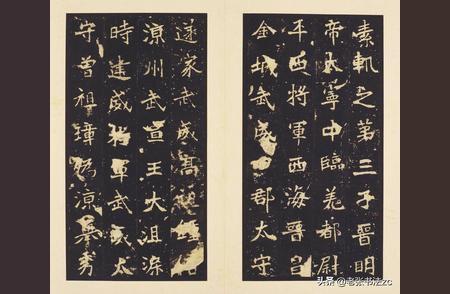 素軌之第三子晉明
帝太寧中臨羌都尉
平西將軍西海晉昌
金城武威郡太守
遂家武威高祖
涼州武宣王大沮渠
時建威將軍武威太
守曾祖璋偽涼舉秀
头条 @老张书法zc